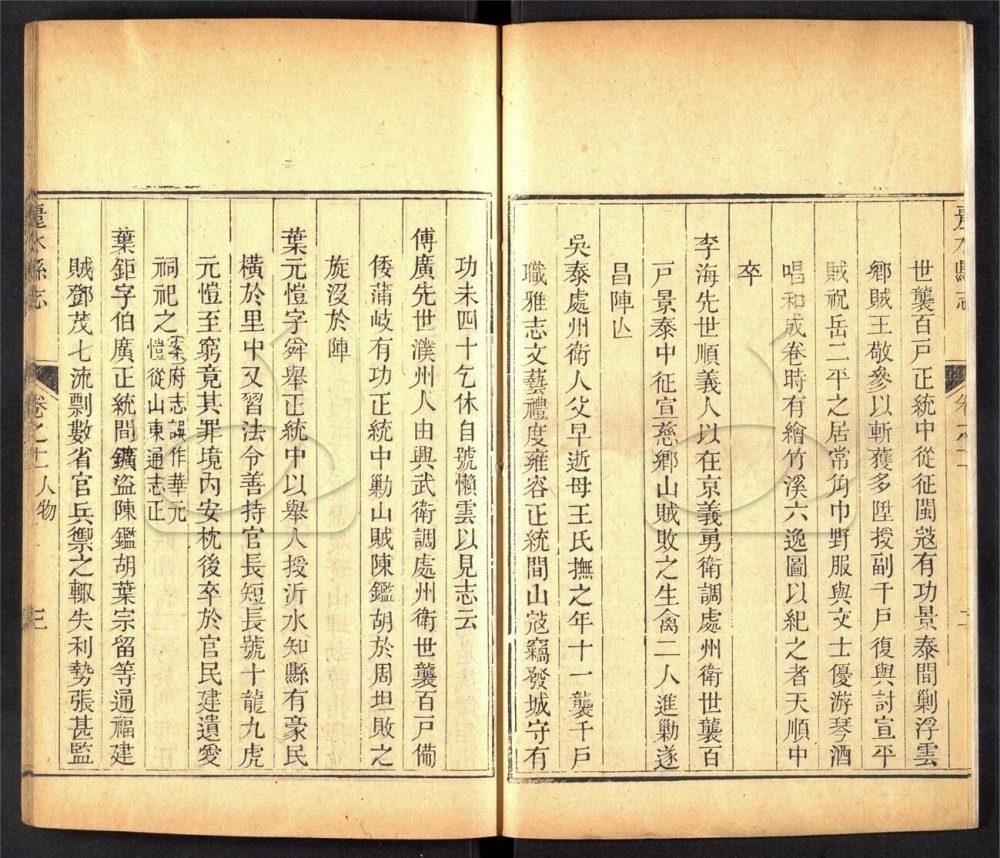 世襲百戸正統中從征閩寇有功景泰間剿浮雲
鄉賊王敬參以斬獲多陞授副千戸復與討宣平
賊祝岳二平之居常角巾野服與文士優游琴酒
唱和成卷時有繪竹溪六逸圖以紀之者天順中
卒
李海先世順義人以在京義勇衛調處州衛世襲百
戸景泰中征宣慈鄉山賊敗之生禽二人進勦遂
昌陣亾
吳泰處州衛人父早逝母王氏撫之年十一襲千戸
職雅志文藝禮度雍容正統間山寇竊發城守有
功未四十乞休自號懶雲以見志云
傅廣先世濮州人由興武衛調處州衛世襲百戸備
倭蒲岐有功正統中勦山賊陳鑑胡於周坦敗之
旋沒於陣
葉元愷字舜舉正統中以舉人授沂水知縣有豪民
橫於里中又習法令善持官長短長號十龍九虎
元愷至窮竟其罪境內安枕後卒於官民建遺愛
祠祀之案府志誤作華元
愷從山東通志正
葉鉅字伯廣正統間鑛盜陳鑑胡葉宗留等通福建
賊鄧茂七流剽數省官兵禦之輒失利勢張甚監
麗水縣志
卷之十一人物
三